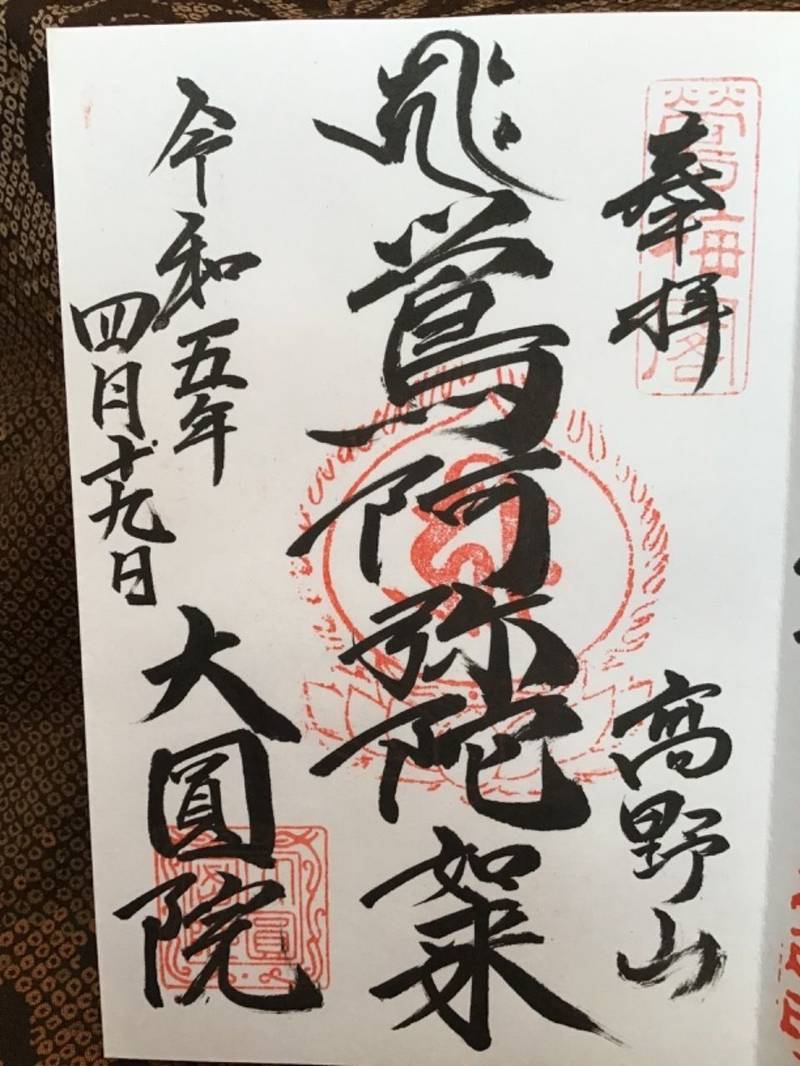 奉拝
高野山
鴬阿弥陀如来
令和五年
四月十九日
大圓院